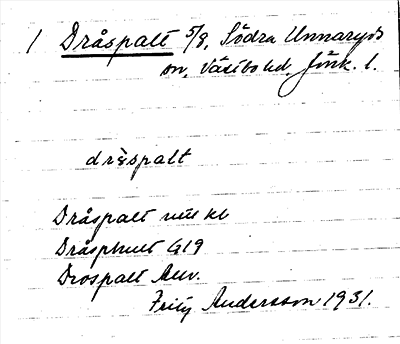 1 Dråspalt 5/8, Södra Unnaryds
sn, Västbo hd, Jönk. l.
drɛ̀spalt
Dråspalt
Dråsphult G19
Drospalt
Fritz Andersson 1931.